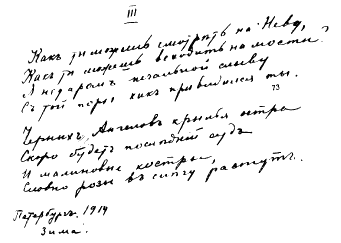 III
Какъ ты можешь смотрѣть на Неву,
Какъ ты можешь всходить на мосты?
Я недаромъ печальной слыву
Съ той поры, какъ привидился ты.
73
Черныхъ Ангеловъ крылья остры
Скоро будетъ послѣдній судъ
И малиновые костры,
Словно розы въ снѣгу растутъ.
Петербургъ. 1914
Зима.